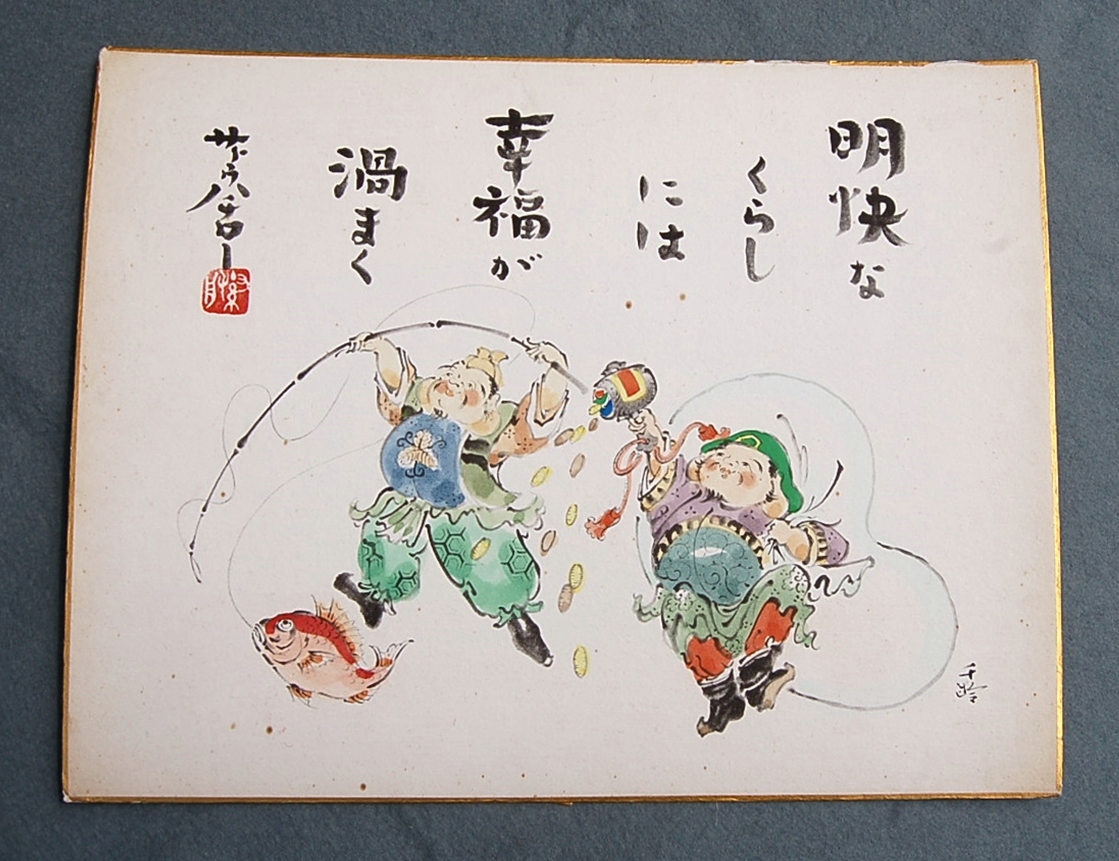 明快な
くらし
には
幸福が
渦まく
サトウハチロー
千齢